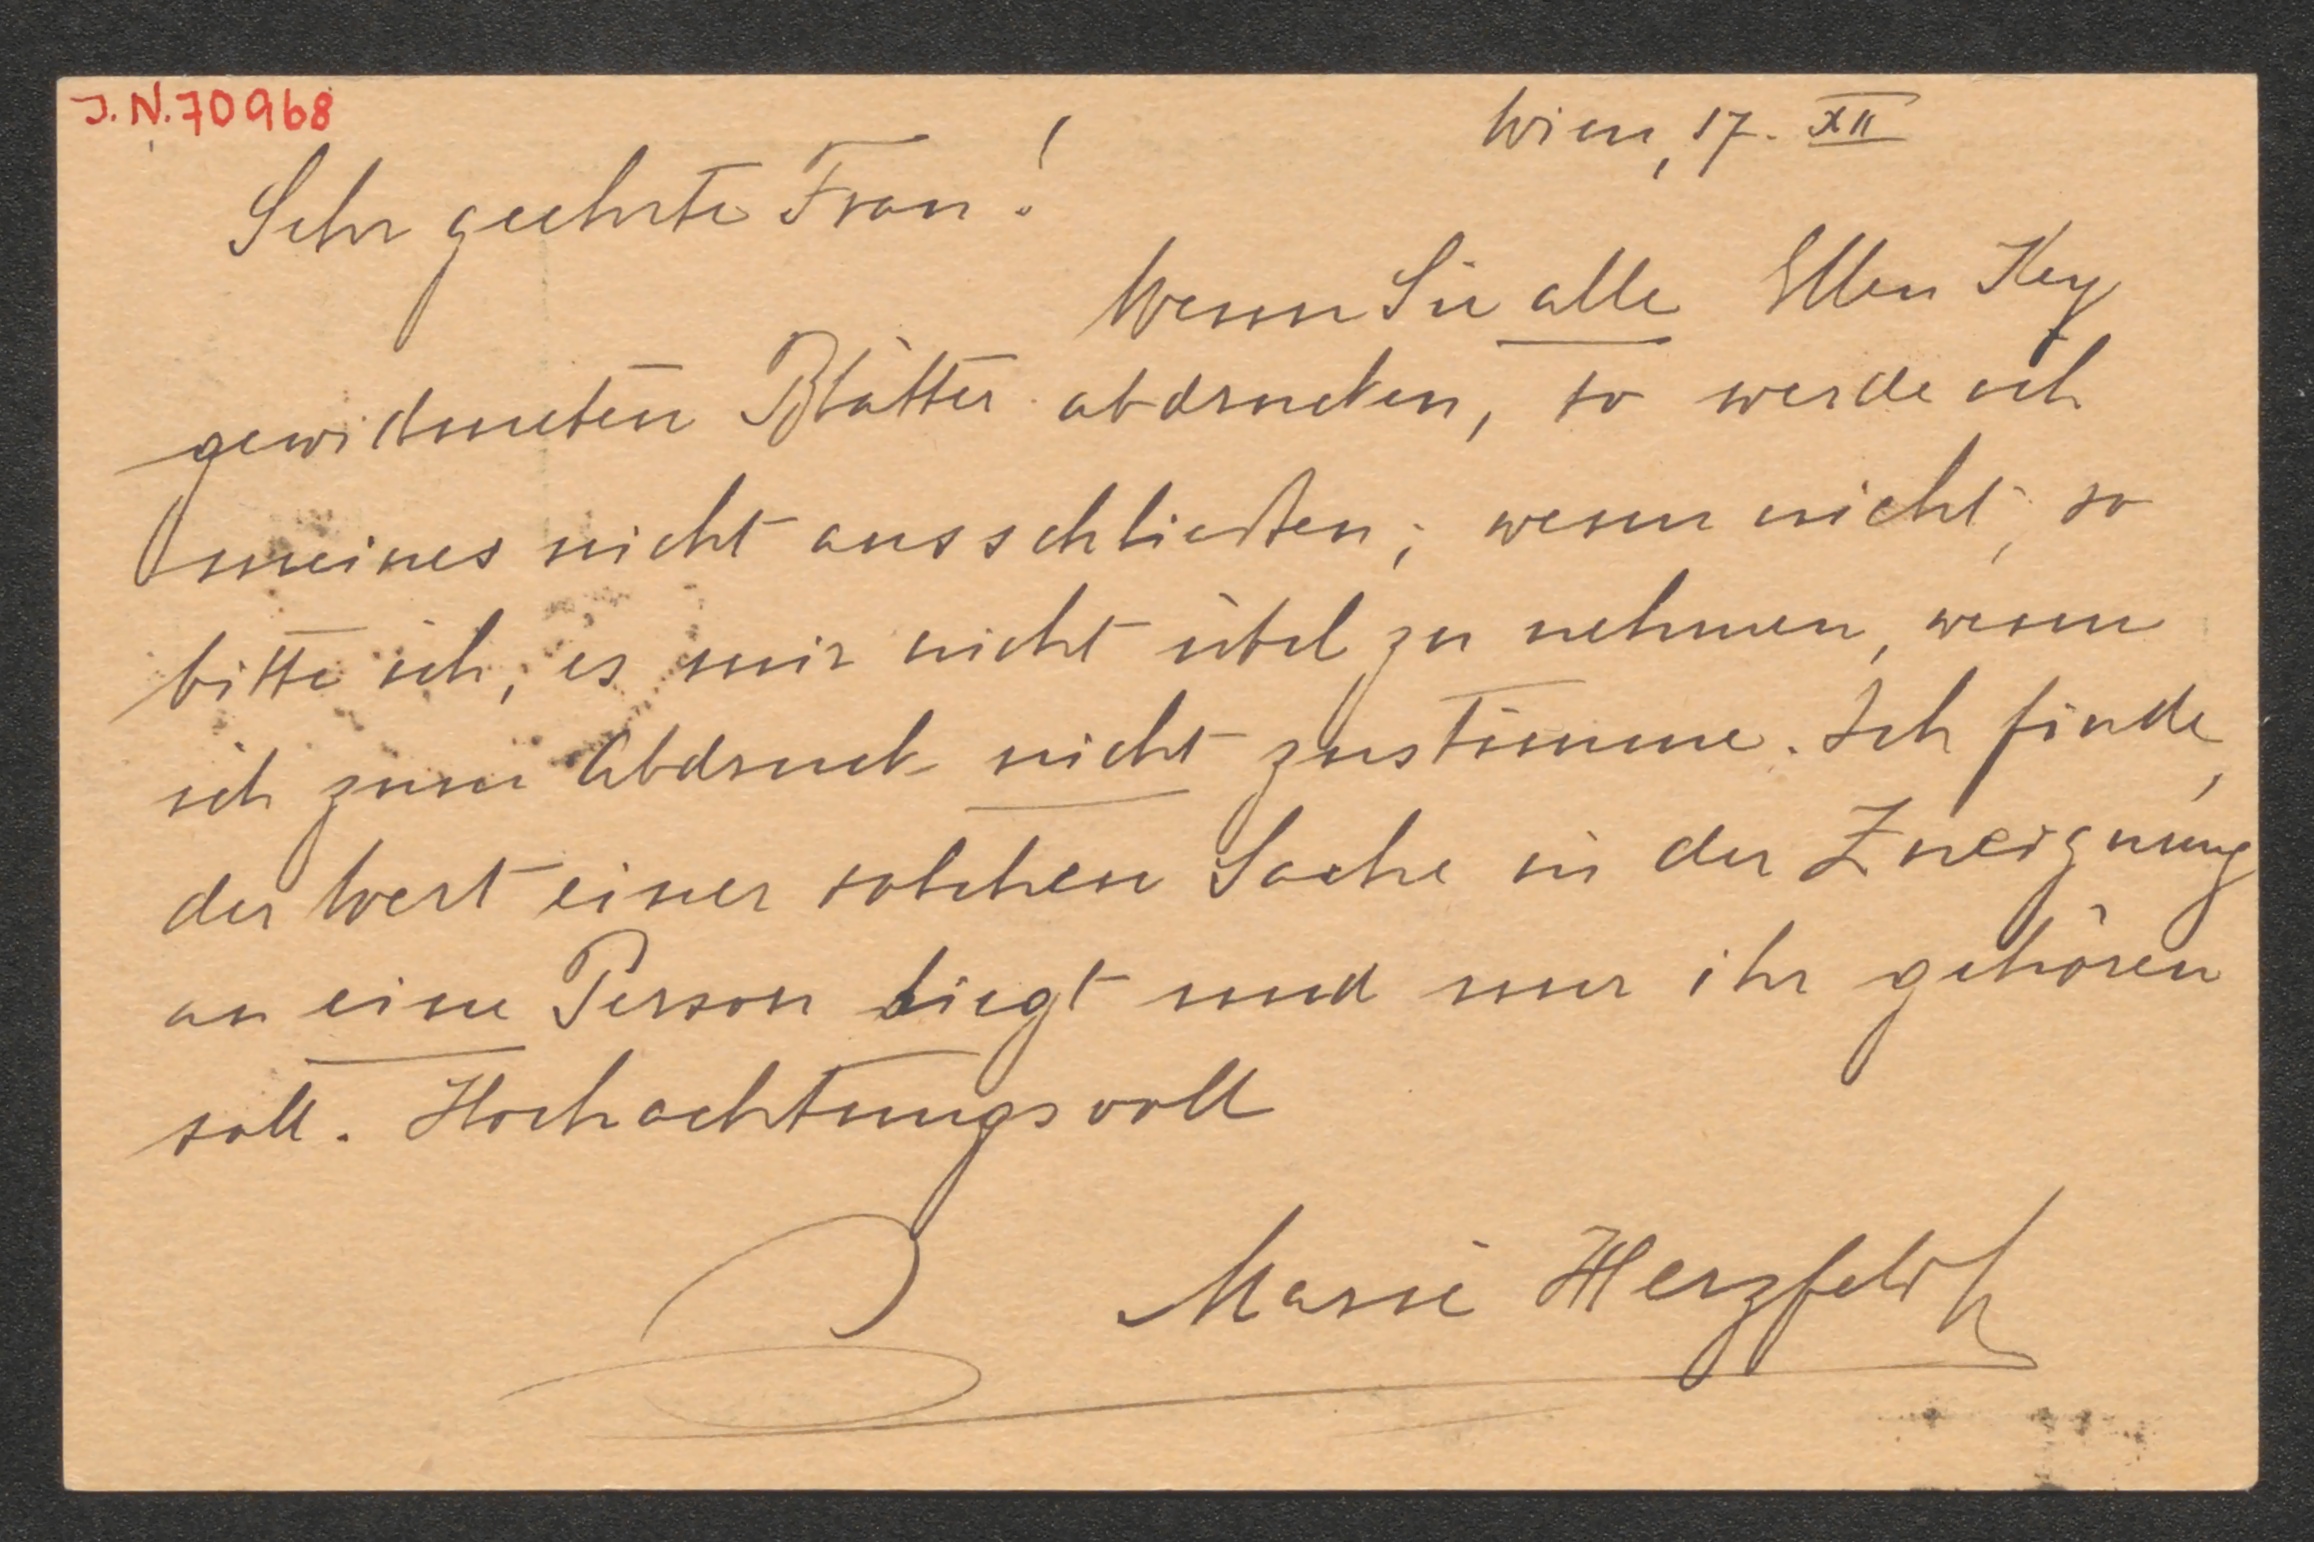 J.N. 70968
Wien, 17. XII
Sehr geehrte Frau!
Wenn Sie alle Ellen Key
gewidmeten Blätter abdrucken, so werde ich
meines nicht ausschließen; wenn nicht, so
bitte ich, es mir nicht übel zu nehmen, wenn
ich zum Abdruck nicht zustimme. Ich finde,
der Wert einer solchen Sache in der Zueignung
an eine Person liegt und nur ihr gehören
soll. Hochachtungsvoll
Marie Herzfeld